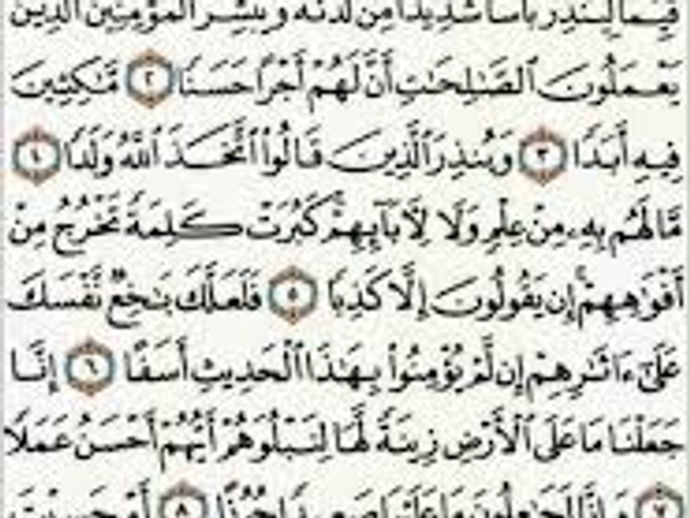 قَيِّمًا لِّيُنذِرَ بَأْسًا شَدِيدًا مِّن لَّدُنْهُ وَيُبَشِّرَ الْمُؤْمِنِينَ الَّذِينَ
يَعْمَلُونَ ٱلصَّٰلِحَٰتِ أَنَّ لَهُمْ أَجْرًا حَسَنًا ٢ مَّٰكِثِينَ
فِيهِ أَبَدًا ٣ وَيُنذِرَ ٱلَّذِينَ قَالُوا۟ ٱتَّخَذَ ٱللَّهُ وَلَدًا ٤
مَّا لَهُم بِهِۦ مِنْ عِلْمٍ وَلَا لِءَابَآئِهِمْ كَبُرَتْ كَلِمَةً تَخْرُجُ مِنْ
أَفْوَٰهِهِمْ إِن يَقُولُونَ إِلَّا كَذِبًا ٥ فَلَعَلَّكَ بَٰخِعٌ نَّفْسَكَ
عَلَىٰٓ ءَاثَٰرِهِمْ إِن لَّمْ يُؤْمِنُوا۟ بِهَٰذَا ٱلْحَدِيثِ أَسَفًا ٦ إِنَّا
جَعَلْنَا مَا عَلَى ٱلْأَرْضِ زِينَةً لَّهَا لِنَبْلُوَهُمْ أَيُّهُمْ أَحْسَنُ عَمَلًا
٧ وَإِنَّا لَجَٰعِلُونَ مَا عَلَيْهَا صَعِيدًا جُرُزًا ٨ أَمْ حَسِبْتَ